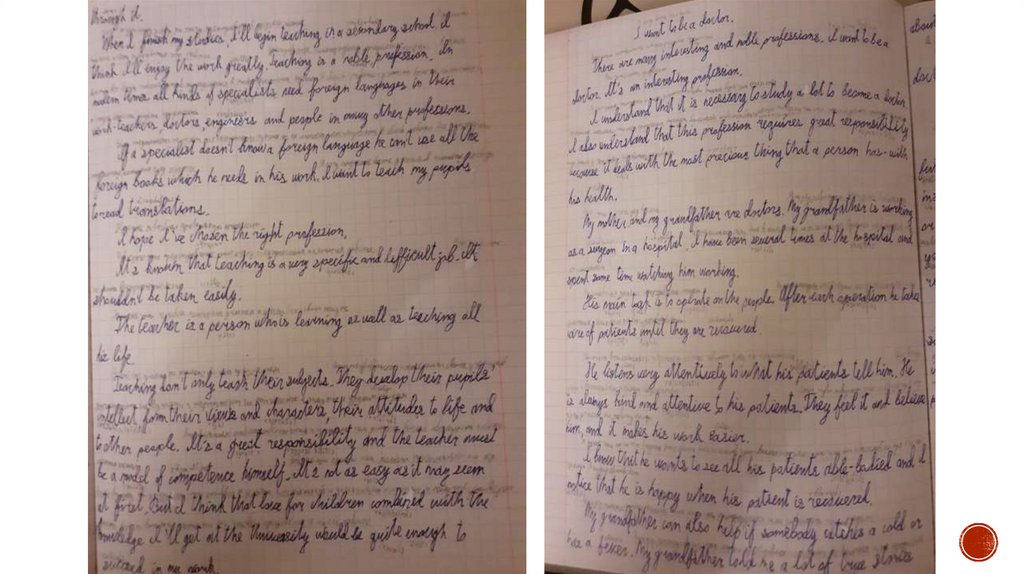 through it.
When I finish my studies, I'll begin teaching in a secondary school. I
think I'll enjoy the work greatly. Teaching is a noble profession. In
modern times all kinds of specialists need foreign languages in their
work-teachers, doctors, engineers and people in many other professions.
If a specialist doesn't know a foreign language he can't use all the
foreign books which he needs in his work. I want to teach my pupils
to read translations.
I hope I've chosen the right profession.
It's known that teaching is a very specific and difficult job. It
shouldn't be taken easily.
The teacher is a person who is learning as well as teaching all
his life.
Teaching don't only teach their subjects. They develop their pupils'
intellect form their views and characters their attitudes to life and
to other people. It's a great responsibility and the teacher must
be a model of competence himself. It's not as easy as it may seem
at first. But I think that love for children combined with the
knowledge I'll get at the University would be quite enough to
succeed in my work.
I want to be a doctor.
There are many interesting and noble professions. I want to be a
doctor. It's an interesting profession.
I understand that it is necessary to study a lot to become a doctor.
I also understand that this profession requires great responsibility,
because it deals with the most precious thing that a person has - with
his health.
My mother and my grandfather are doctors. My grandfather is working
as a surgeon in a hospital. I have been several times at the hospital and
spent some time watching him working.
His main task is to operate on the people. After each operation he takes
care of patients until they are recovered.
He listens very attentively to what his patients tell him. He
is always kind and attentive to his patients. They feel it and believe
him, and it makes his work easier.
I know that he wants to see all his patients able-bodied and I
notice that he is happy when his patient is recovered.
My grandfather can also help if somebody catches a cold or
has a fever. My grandfather told me a lot of true stories